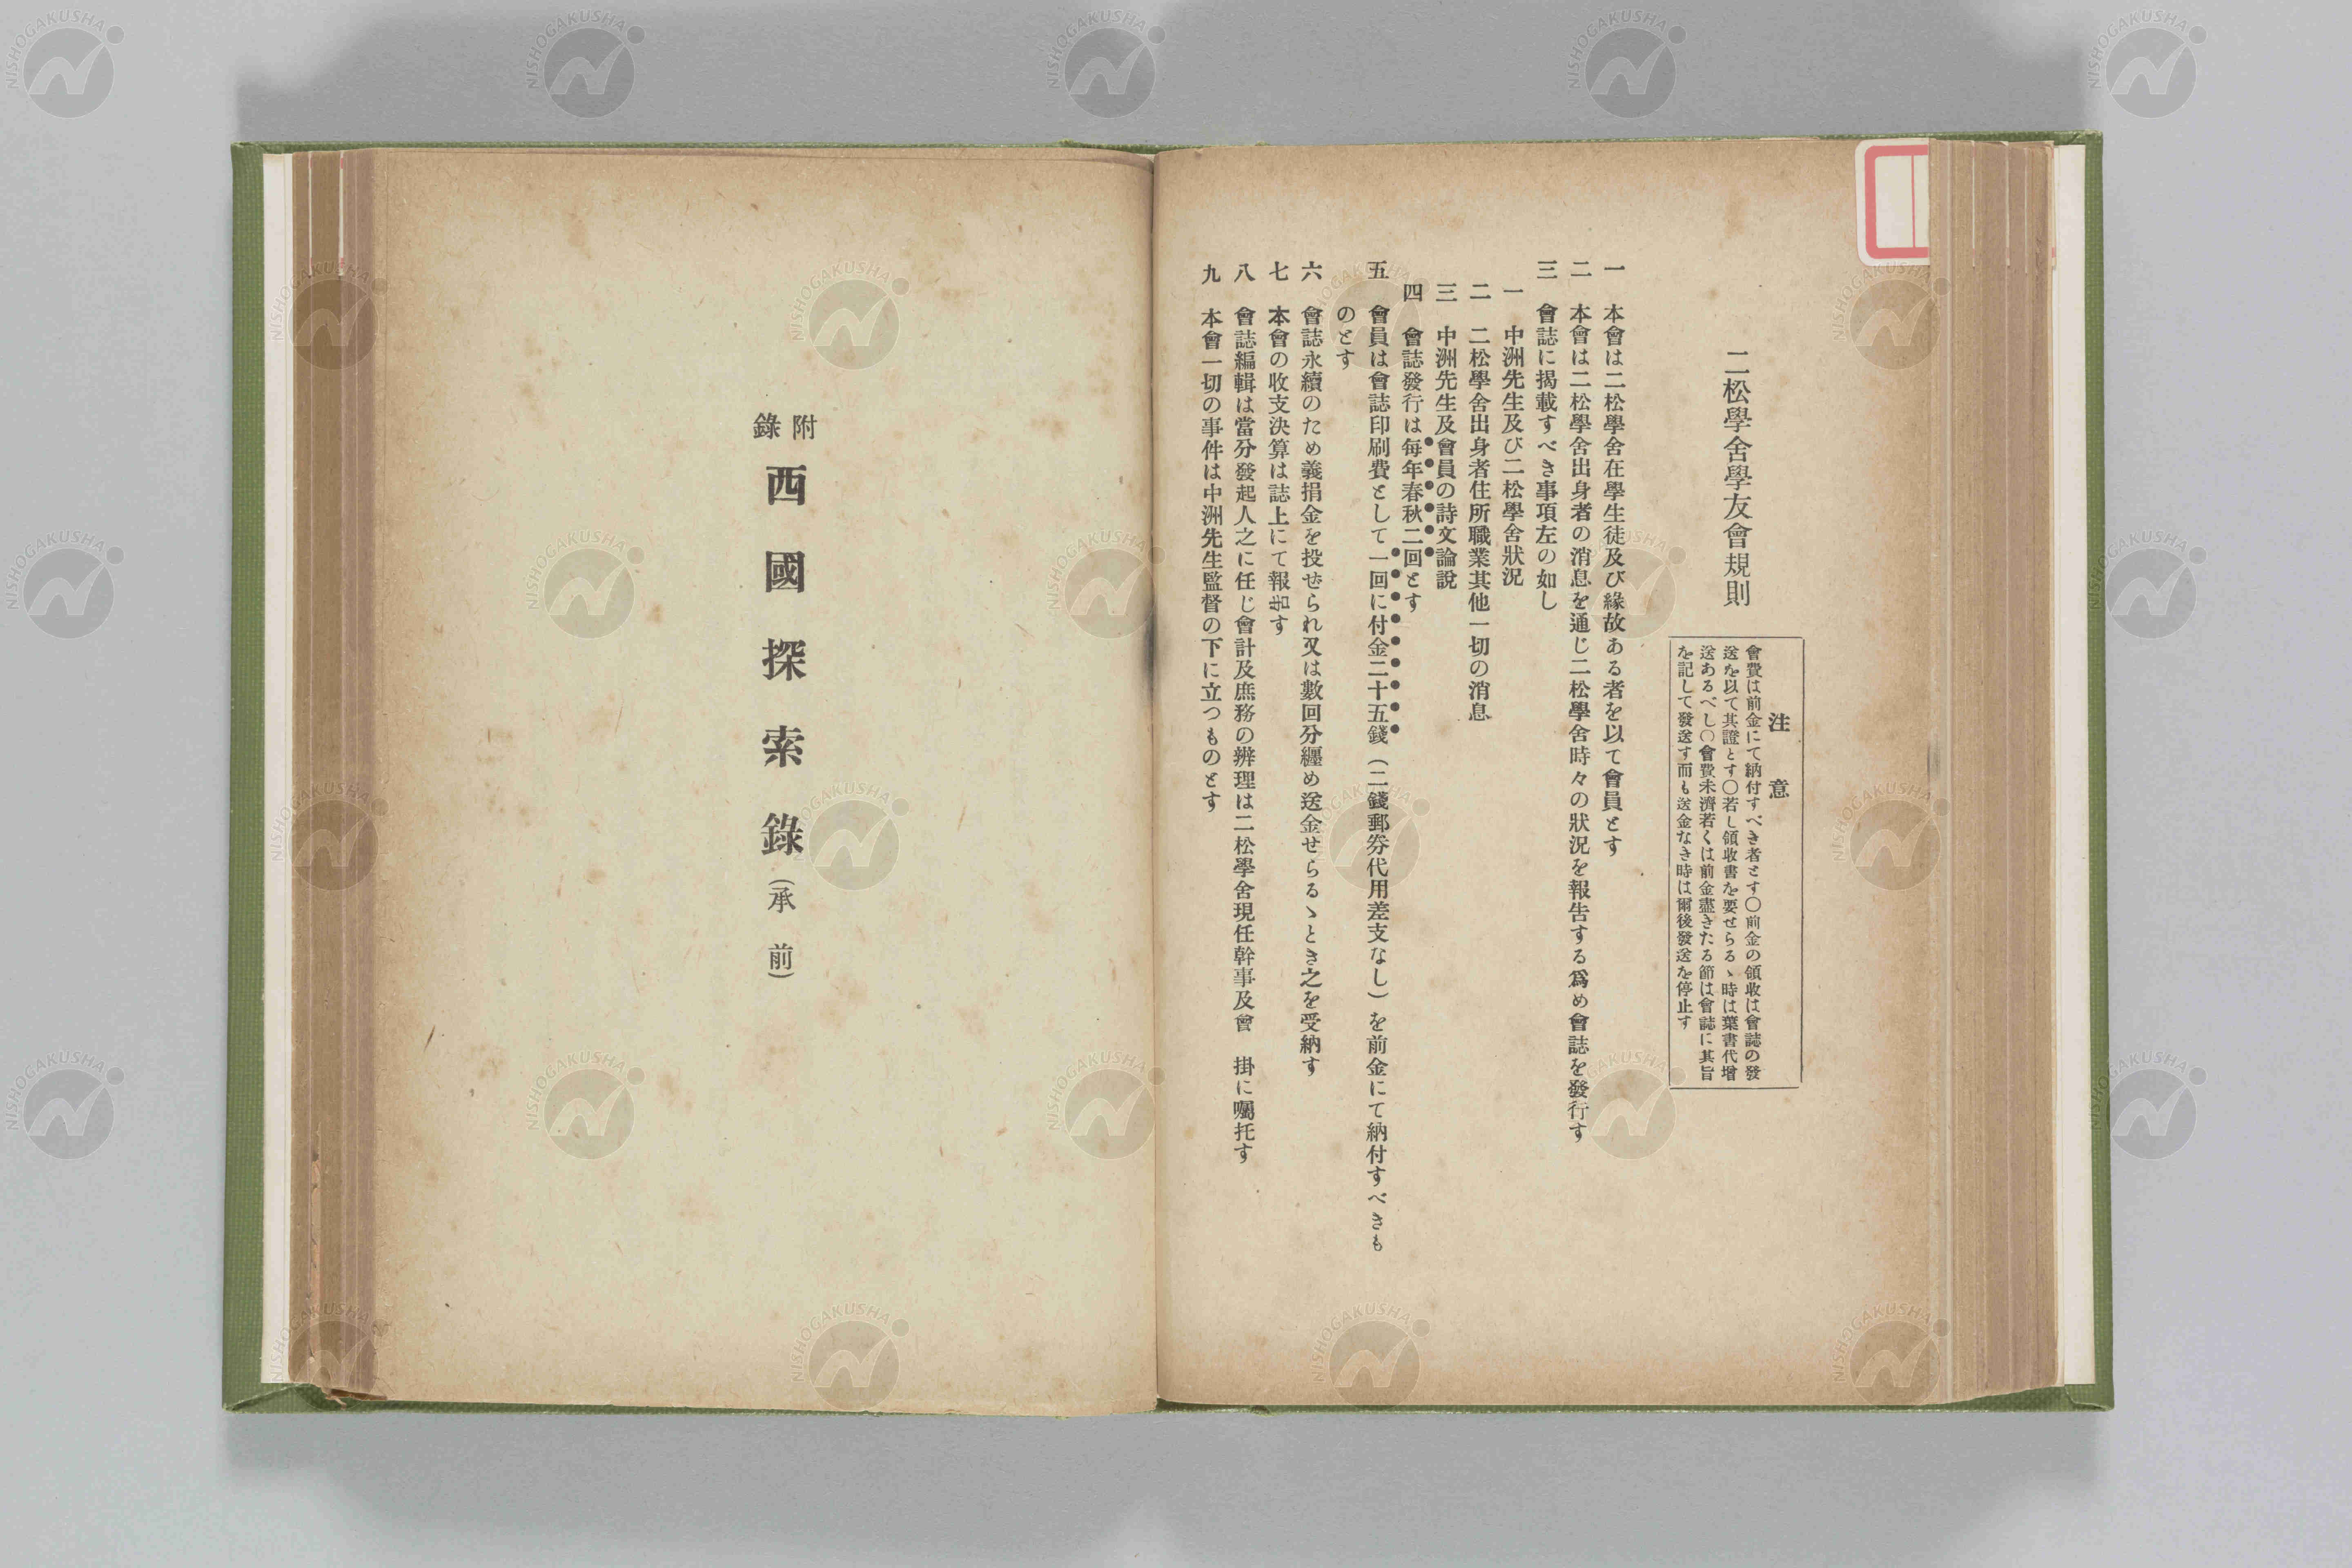 二松學舍學友會規則
注意
會費は前金にて納付すべき者とす〇前金の領收は會誌の發
送を以て其證とす〇若し領收書を要せらるゝ時は葉書代增
送あるべし〇會費未濟若くは前金盡きたる節は會誌に其旨
を記して發送す而も送金なき時は爾後發送を停止す
一 本會は二松學舍在學生徒及び緣故ある者を以て會員とす
二 本會は二松學舍出身者の消息を通じ二松學舍時々の狀況を報告する爲め會誌を發行す
三 會誌に揭載すべき事項左の如し
一 中洲先生及び二松學舍狀況
二 二松學舍出身者住所職業其他一切の消息
三 中洲先生及會員の詩文論說
四 會誌發行は每年春秋二回とす
五 會員は會誌印刷費として一回に付金二十五錢（二錢郵券代用差支なし）を前金にて納付すべきも
のとす
六 會誌永續のため義捐金を投せられ又は數回分纒め送金せらるゝとき之を受納す
七 本會の收支決算は誌上にて報告す
八 會誌編輯は當分發起人之に任じ會計及庶務の辨理は二松學舍現任幹事及會 掛に囑托す
九 本會一切の事件は中洲先生監督の下に立つものとす
附錄 西國探索錄（承前）
NISHOGAKUSHA